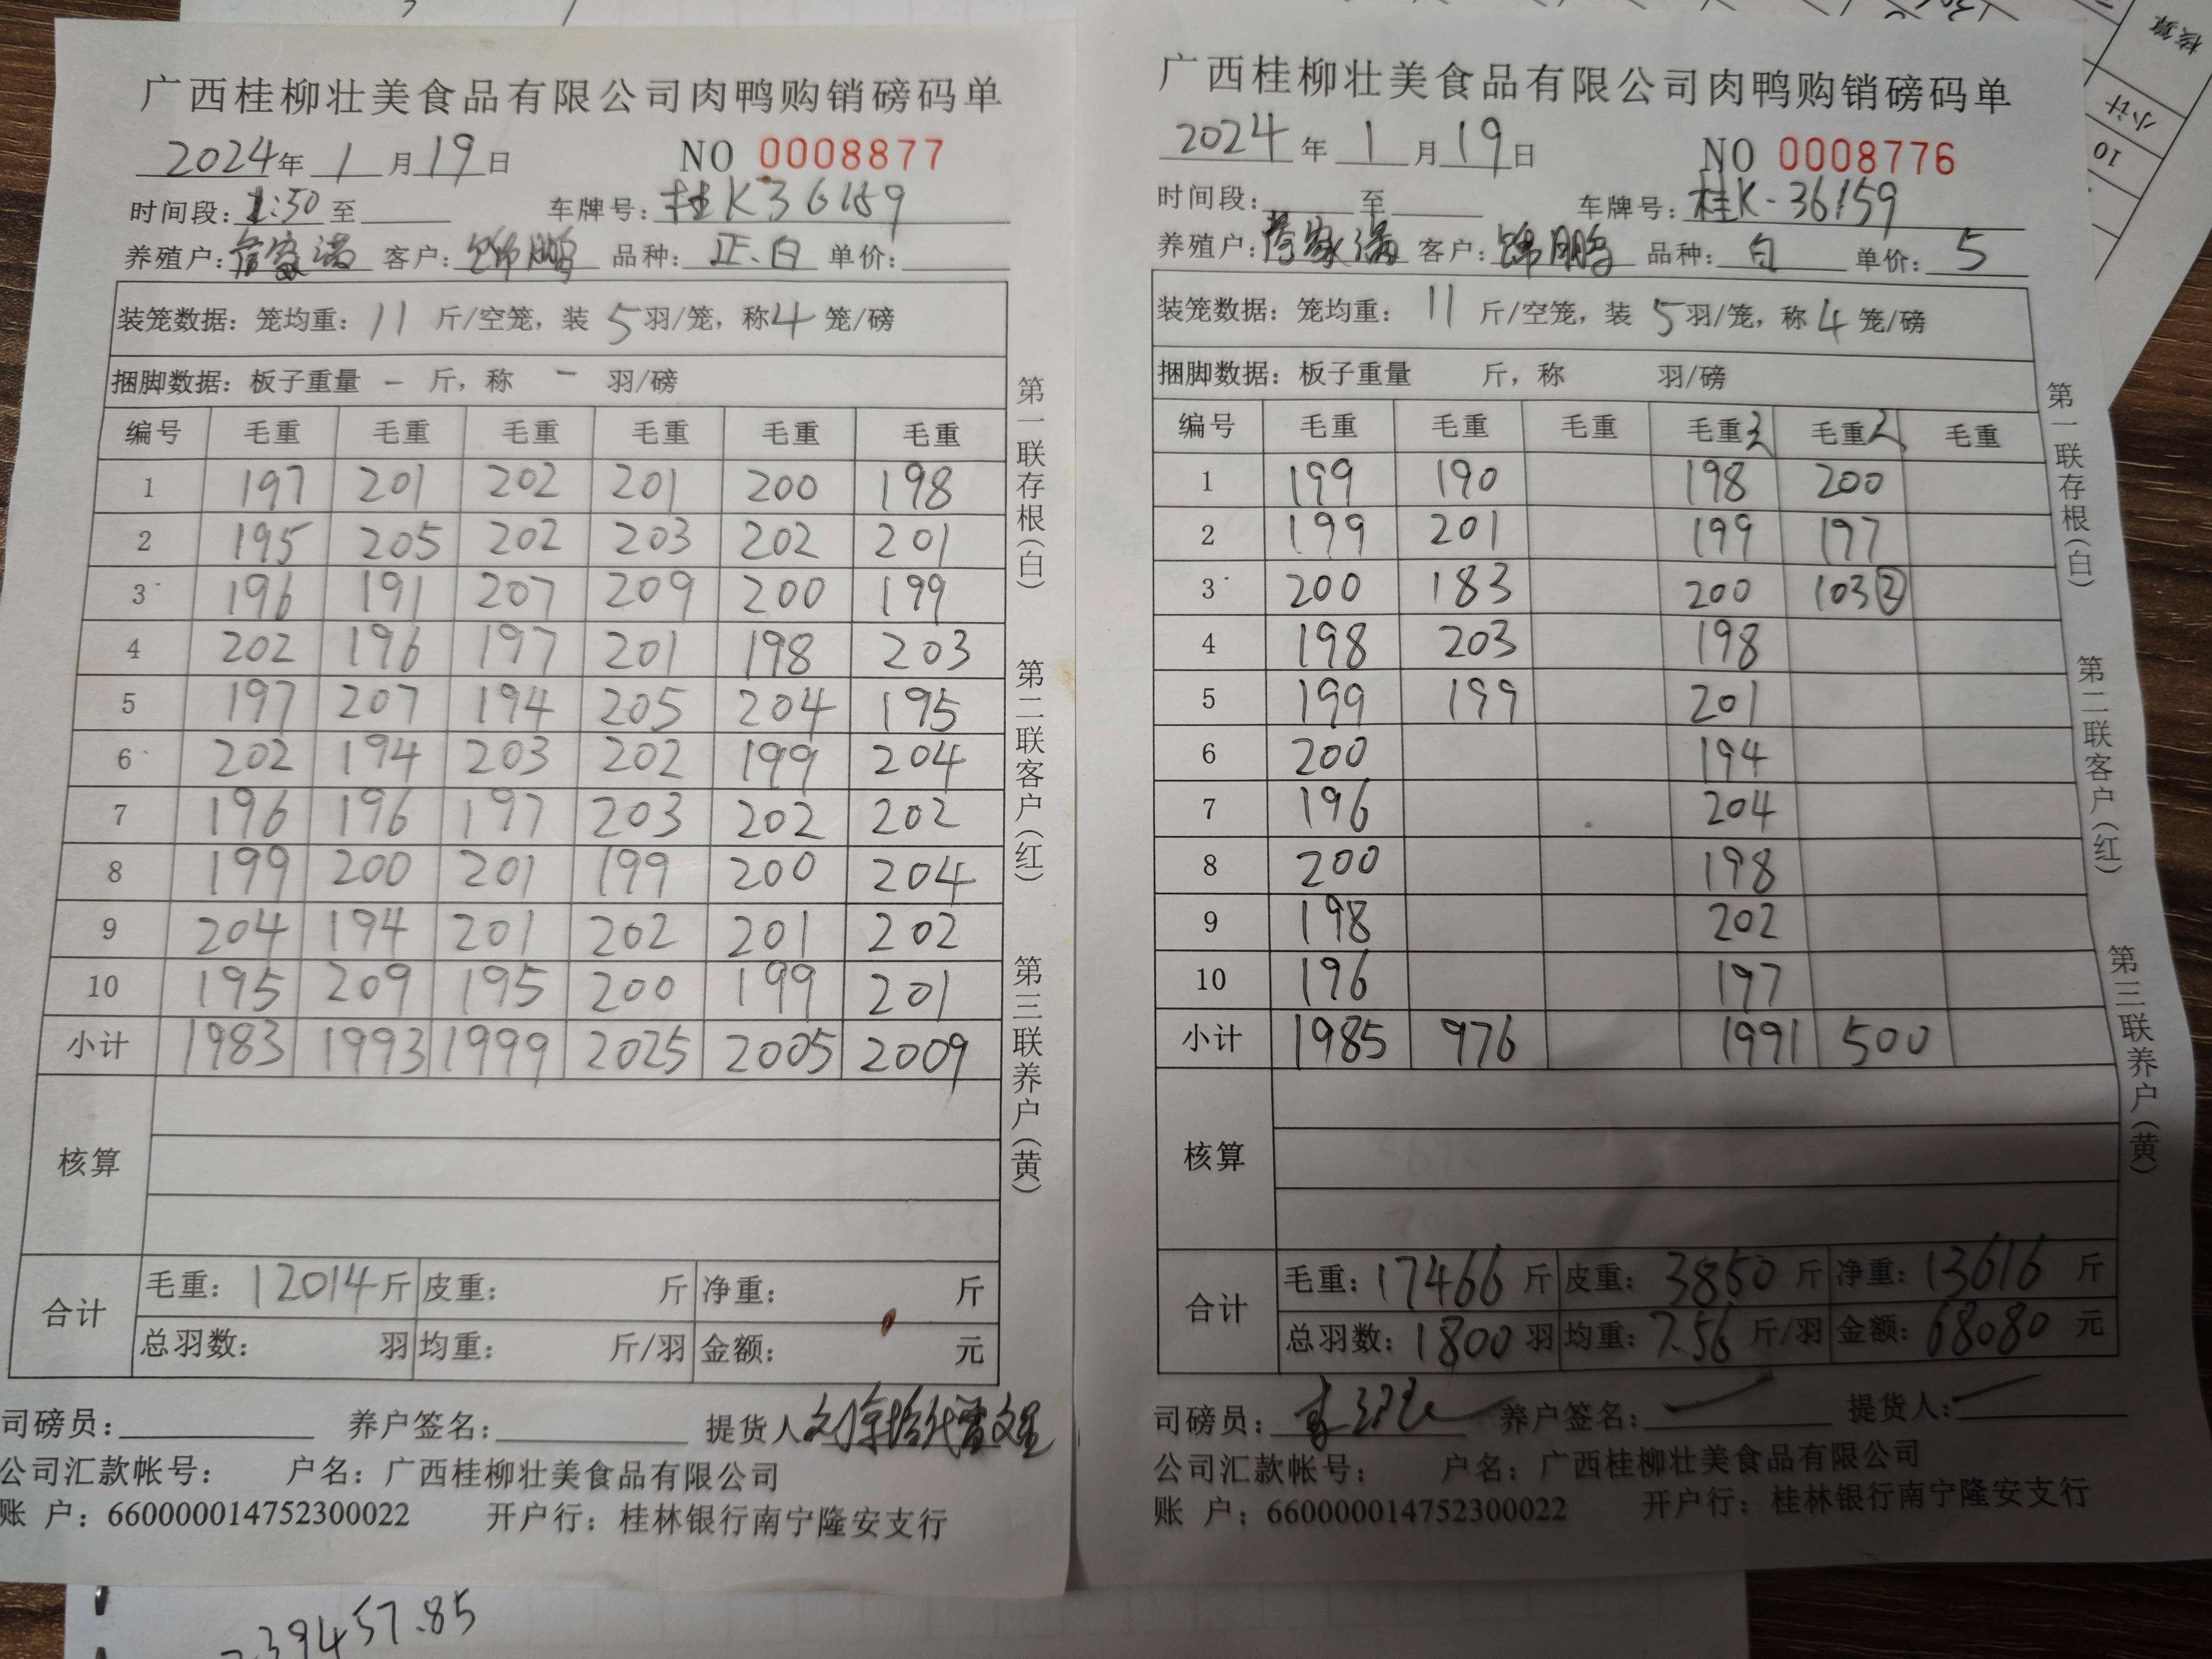 广西桂柳壮美食品有限公司肉鸭购销磅码单
2024年 1 月 19 日 NO 0008877
时间段: 1:50 至 车牌号: 桂K36159
养殖户: 客户: 锦鹏 品种: 正.白 单价:
装笼数据: 笼均重: 11 斤/空笼, 装 5 羽/笼, 称 4 笼/磅
捆脚数据: 板子重量 — 斤, 称 — 羽/磅
编号 毛重 毛重 毛重 毛重 毛重 毛重
1 197 201 202 201 200 198
2 195 205 202 203 202 201
3 196 191 207 209 200 199
4 202 196 197 201 198 203
5 197 207 194 205 204 195
6 202 194 203 202 199 204
7 196 196 197 203 202 202
8 199 200 201 199 200 204
9 204 194 201 202 201 202
10 195 209 195 200 199 201
小计 1983 1993 1999 2025 2005 2009
核算
合计 毛重: 12014 斤 皮重: 斤 净重: 斤
总羽数: 羽 均重: 斤/羽 金额: 元
司磅员: 养户签名: 提货人
公司汇款帐号: 户名: 广西桂柳壮美食品有限公司
账 户: 660000014752300022 开户行: 桂林银行南宁隆安支行
第一联存根(白) 第二联客户(红) 第三联养户(黄)
广西桂柳壮美食品有限公司肉鸭购销磅码单
2024 年 1 月 19 日 NO 0008776
时间段: 至 车牌号: 桂K-36159
养殖户: 客户: 锦鹏 品种: 白 单价: 5
装笼数据: 笼均重: 11 斤/空笼, 装 5 羽/笼, 称 4 笼/磅
捆脚数据: 板子重量 斤, 称 羽/磅
编号 毛重 毛重 毛重 毛重 毛重 毛重
1 199 190 198 200
2 199 201 199 197
3 200 183 200 103②
4 198 203 198
5 199 199 201
6 200 194
7 196 204
8 200 198
9 198 202
10 196 197
小计 1985 976 1991 500
核算
合计 毛重: 17466 斤 皮重: 3850 斤 净重: 13616 斤
总羽数: 1800 羽 均重: 7.56 斤/羽 金额: 68080 元
司磅员: 养户签名: 提货人:
公司汇款帐号: 户名: 广西桂柳壮美食品有限公司
账 户: 660000014752300022 开户行: 桂林银行南宁隆安支行
第一联存根(白) 第二联客户(红) 第三联养户(黄)
核算
小计
10
39457.85